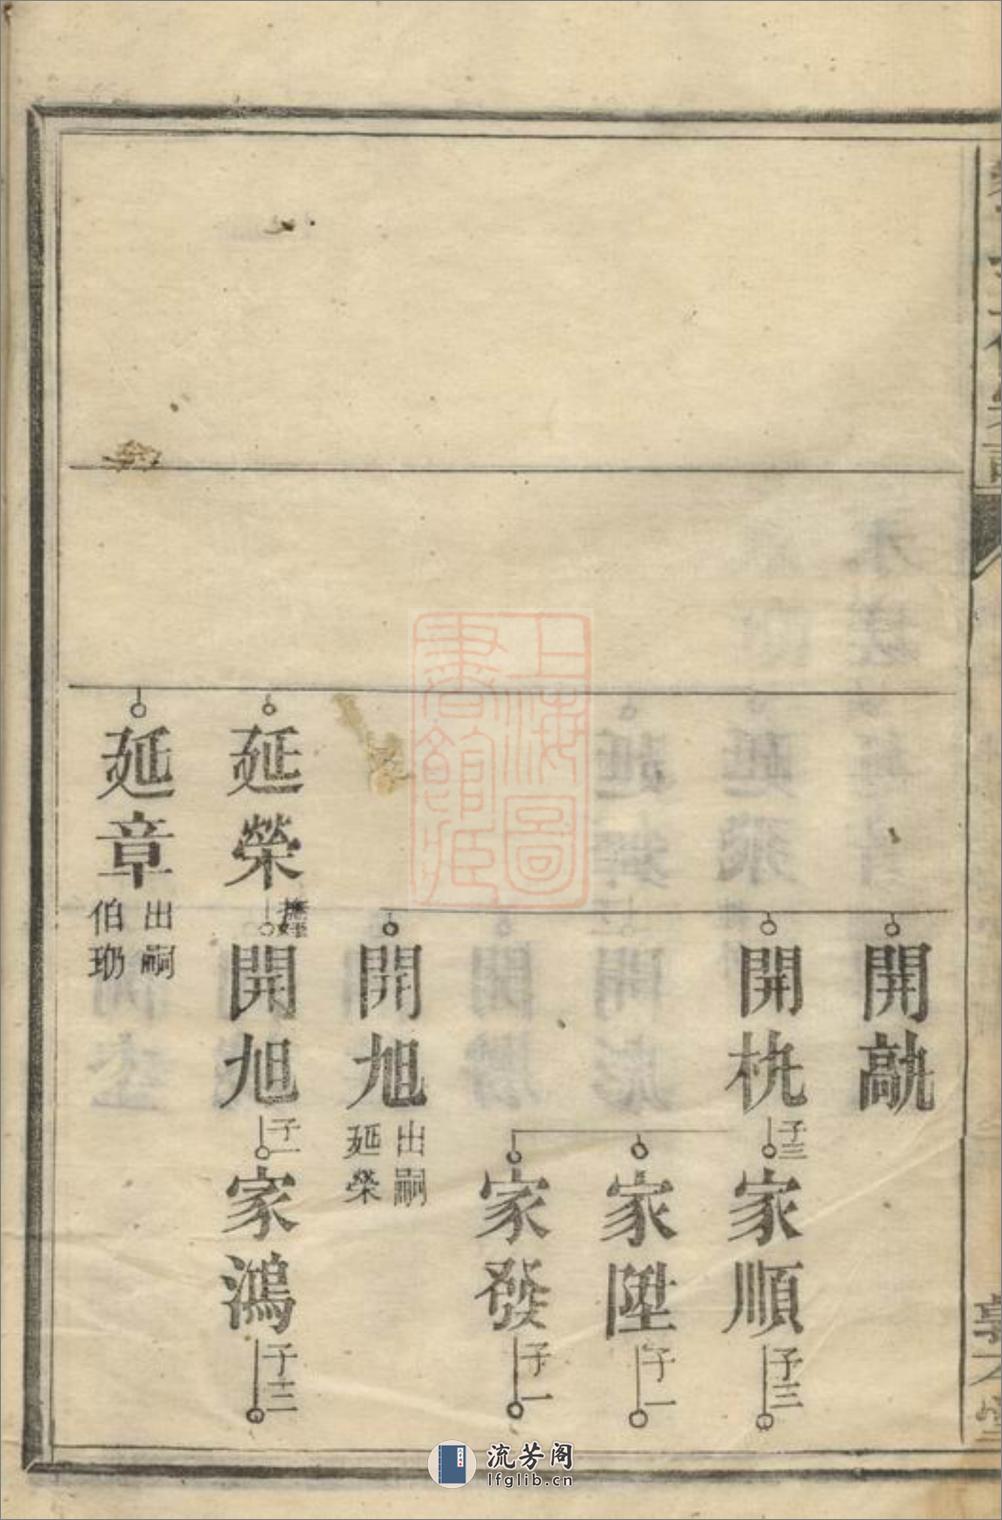 開㽎
開杭
子三
家順
子三
家陞
子一
家發
子一
開旭
出嗣
延榮
延榮
撫姪
開旭
子一
家鴻
子三
延章
出嗣
伯玡
上海圖
書館藏
流芳阁
lfglib.cn